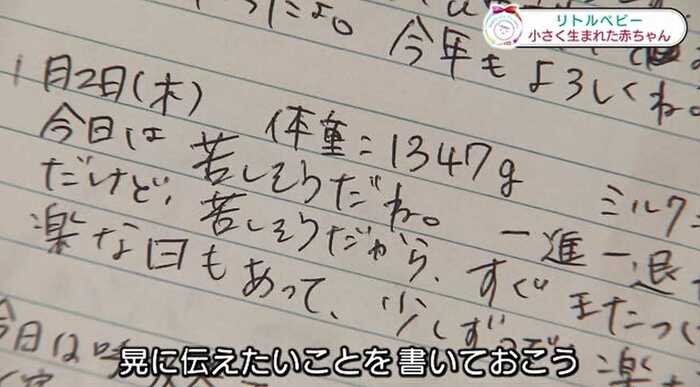 リトルベビー
小さく生まれた赤ちゃん
今年もよろしくね。
1月2日(木) 体重:1347g ミルク
今日は苦しそうだね。 一進一退
だけど、苦しそうだから、すぐ
楽な日もあって、少しずつ
今日は
晃に伝えたいことを書いておこう